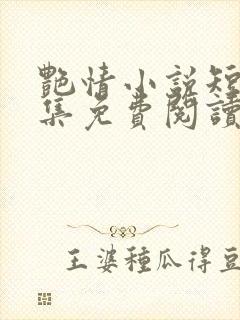 艷情小說短
集免費閱讀
王婆種瓜得豆